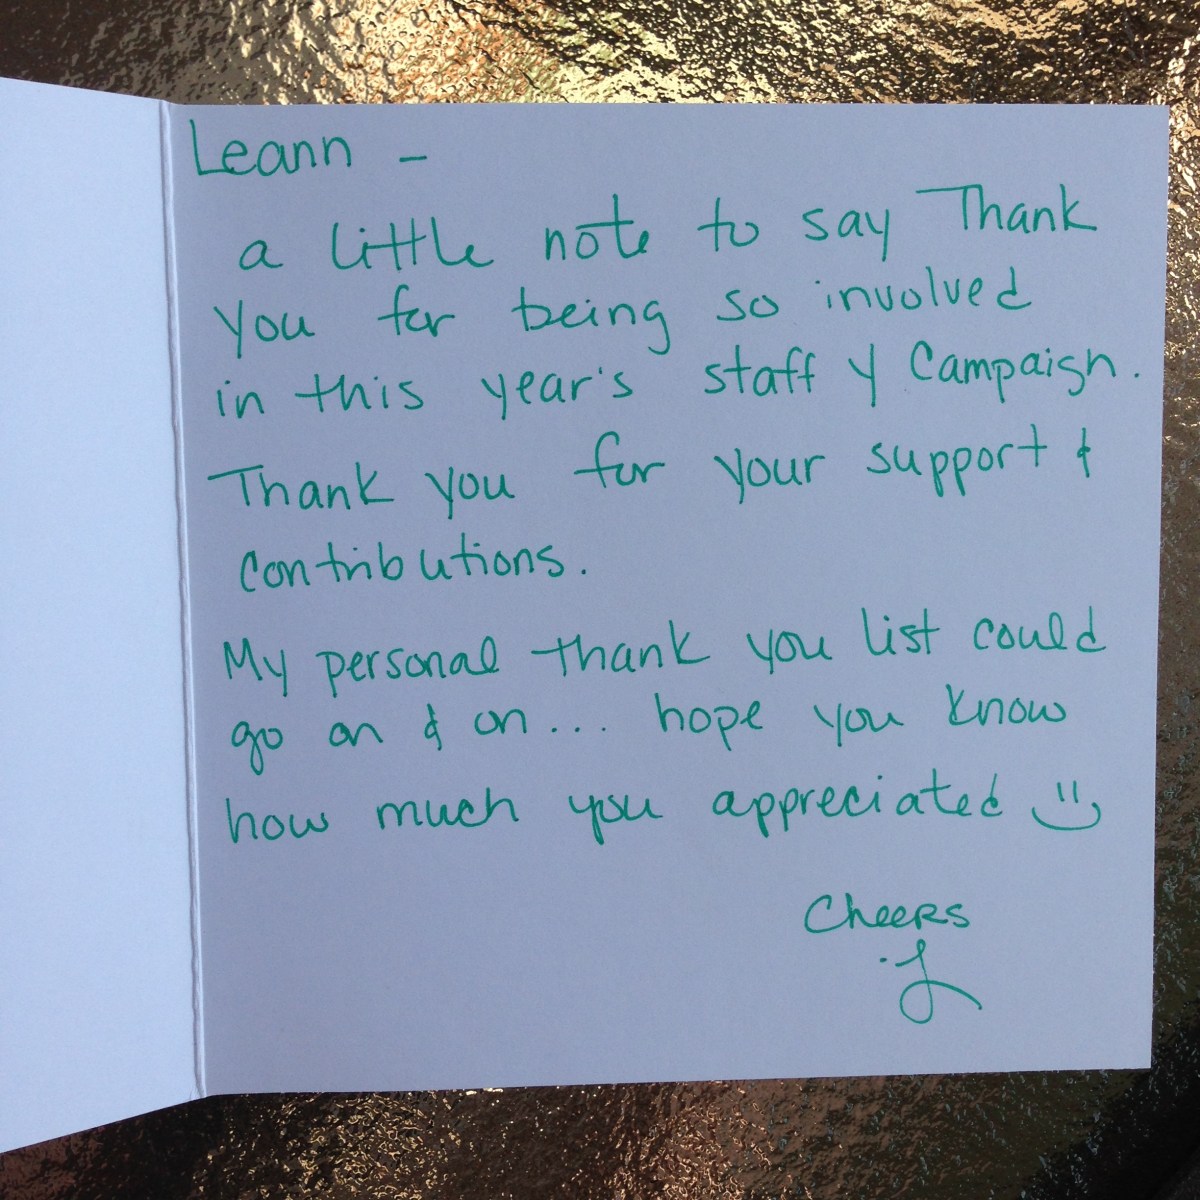 Leann -
a little note to say Thank
you for being so involved
in this year's staff Y Campaign.
Thank you for your support &
contributions.
My personal thank you list could
go on & on... hope you know
how much you appreciated
Cheers